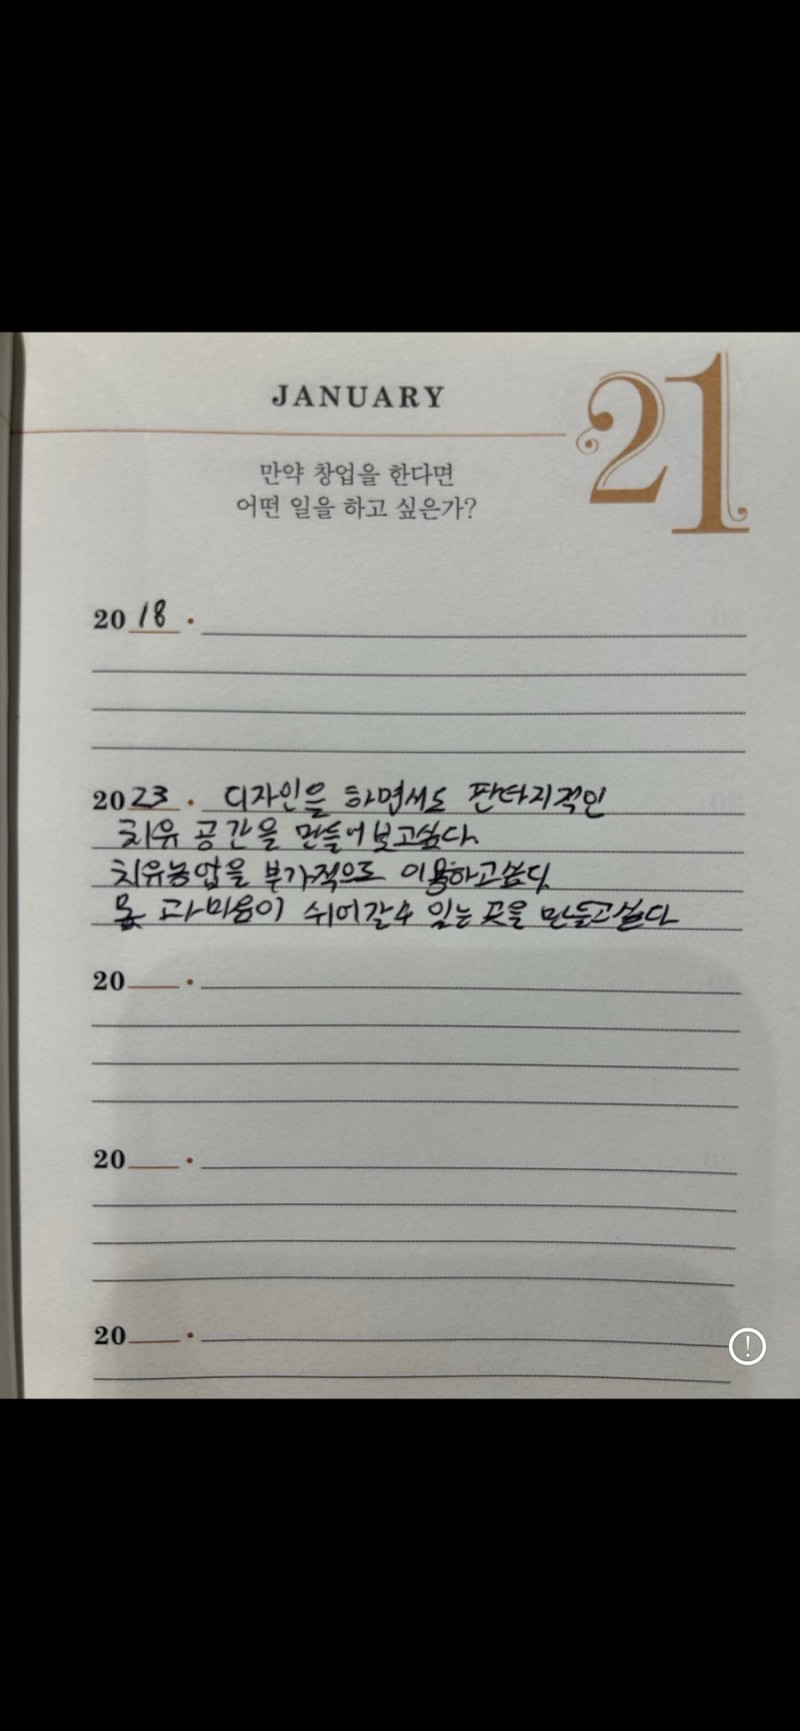 JANUARY
21
만약 창업을 한다면
어떤 일을 하고 싶은가?
20 18 ·
20 23 · 디자인을 하면서도 판타지적인
치유 공간을 만들어보고싶다.
치유농업을 부가적으로 이용하고싶다.
몸 과 마음이 쉬어갈수 있는 곳을 만들고싶다
20 ·
20 ·
20 ·